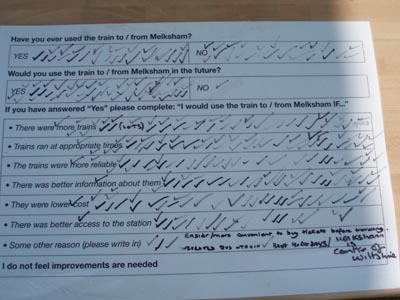 Have you ever used the train to / from Melksham?
YES NO
Would you use the train to / from Melksham in the future?
YES NO
If you have answered "Yes" please complete: "I would use the train to / from Melksham IF..."
• There were more trains (LOTS)
• Trains ran at appropriate times
• The trains were more reliable
• There was better information about them
• They were lower cost
• There was better access to the station
• Some other reason (please write in) Easier/more convenient to buy tickets before travelling.
BUS + TRAIN HOLIDAYS/ MELKSHAM IS
centre of
Wiltshire
I do not feel improvements are needed